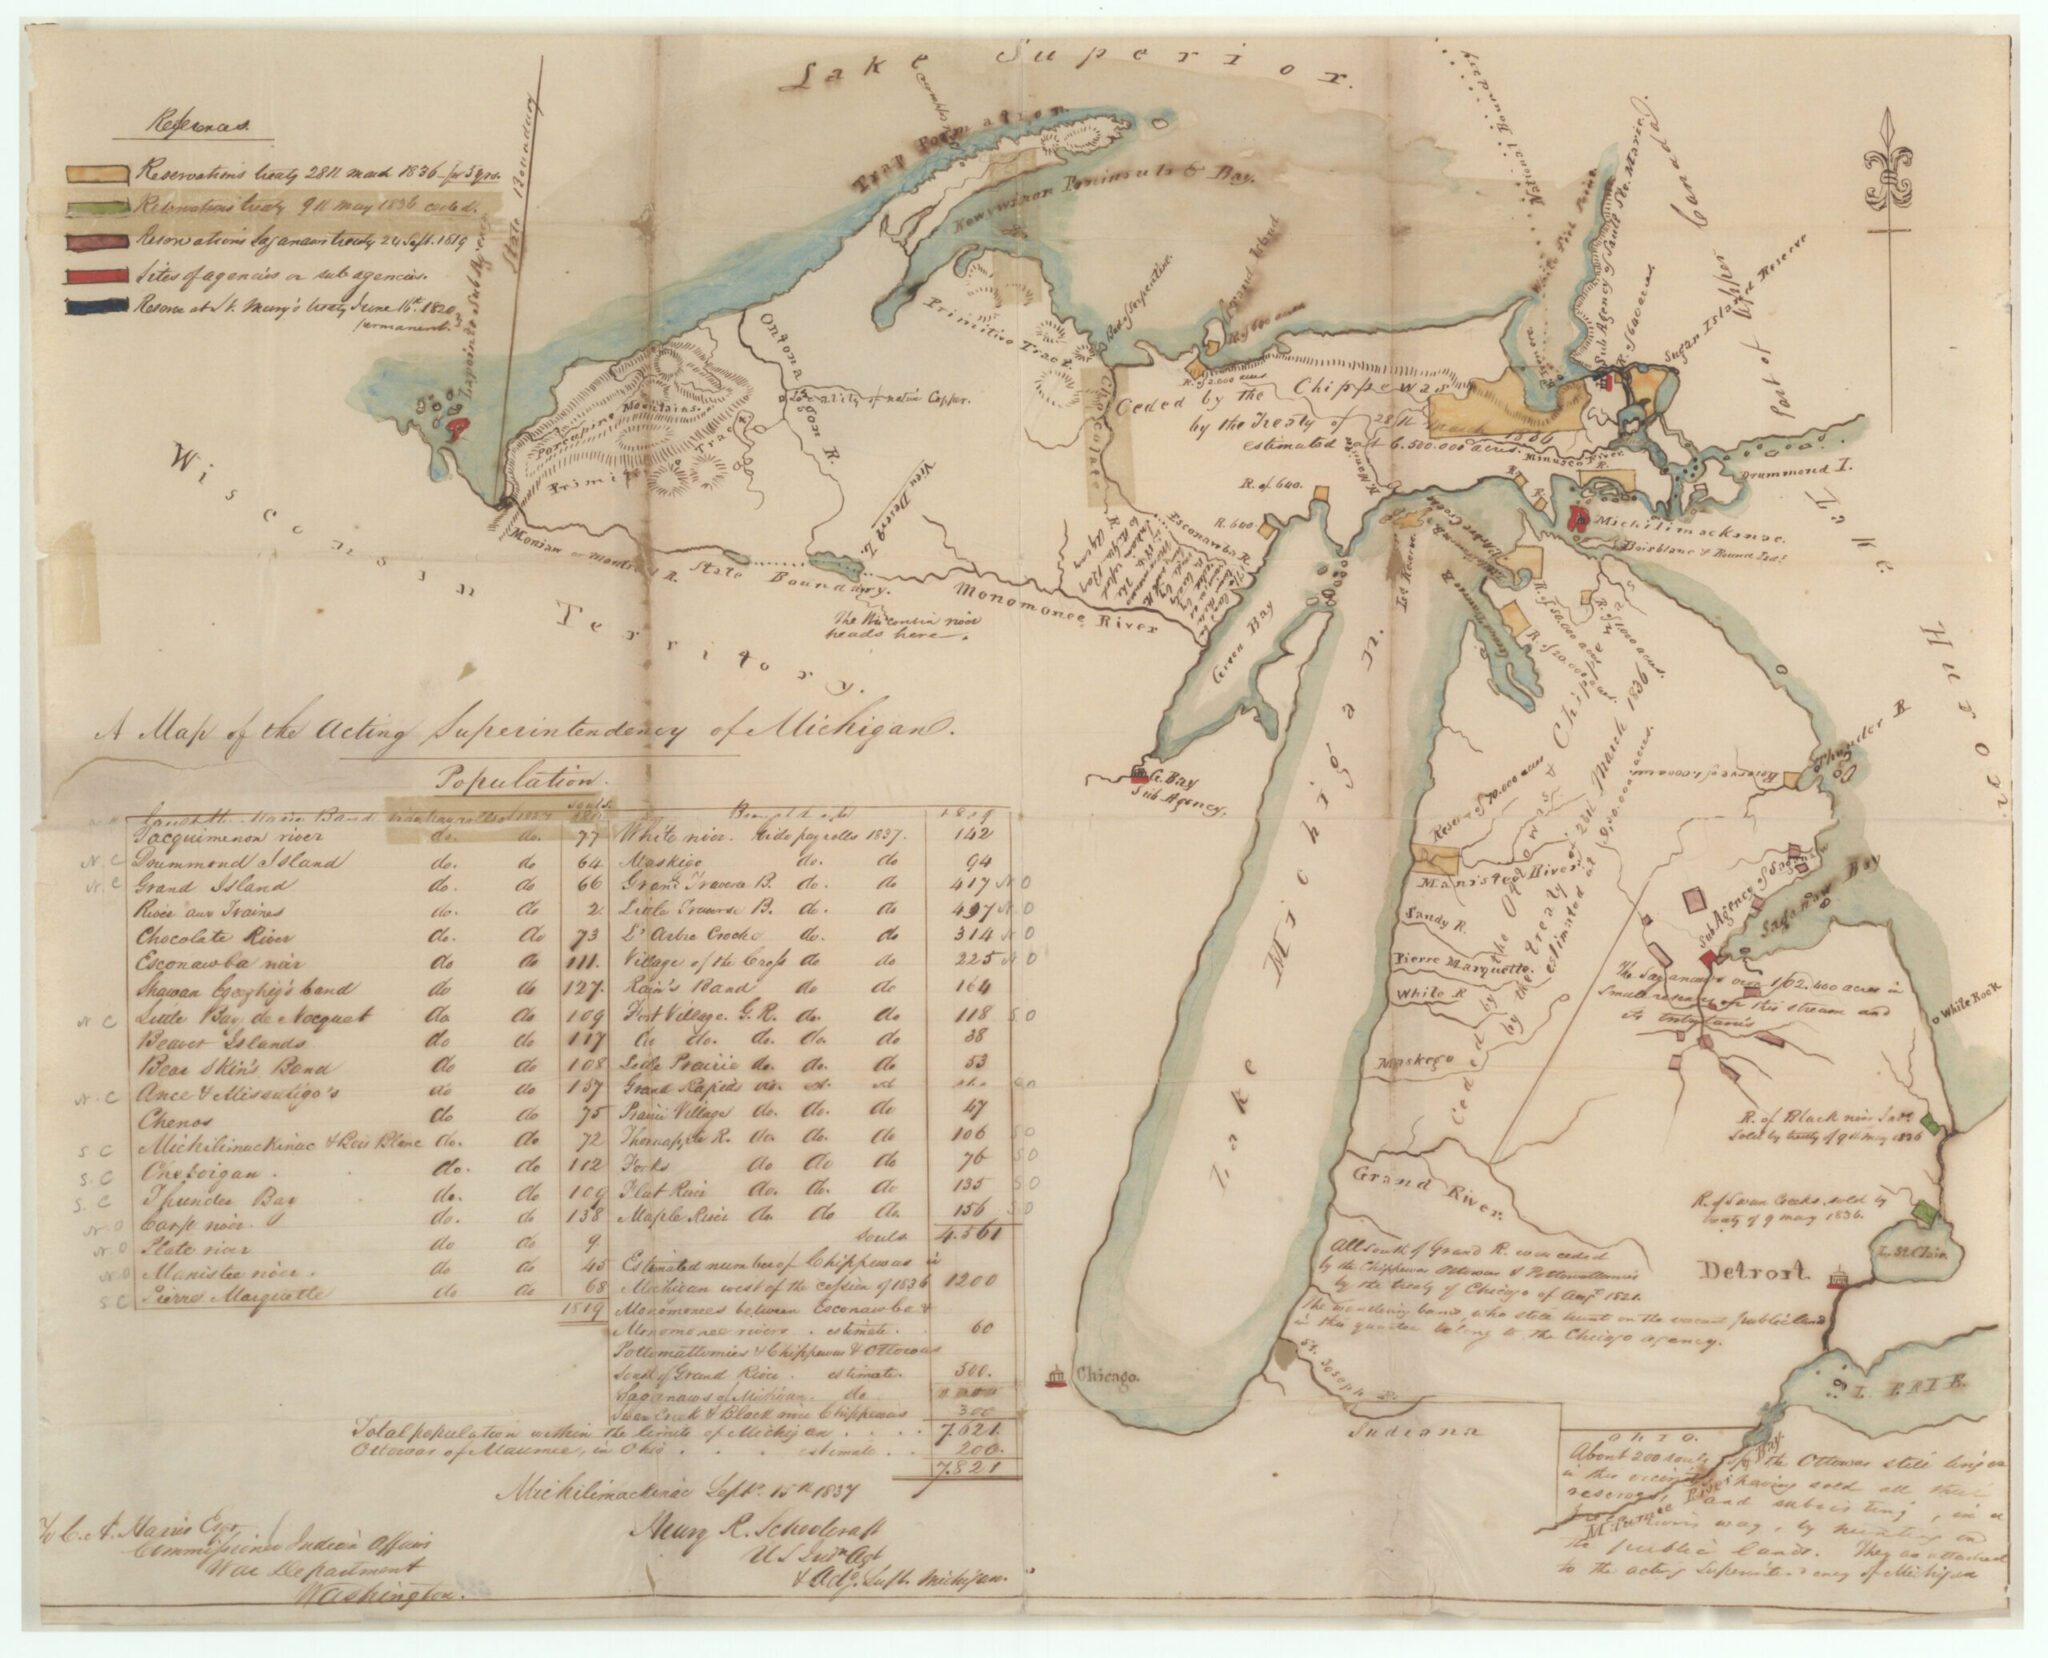 References.
Reservations treaty 28th march 1836 - for 5 yrs.
Reservations treaty 9th may 1836 ceded.
Reservations Saganaw treaty 24 Sept. 1819
Sites of agencies or sub agencies.
Reserve at St. Mary's treaty June 16th 1820
permanent.
Lapointe Sub Agency
State Boundary
Lake Superior.
Trap Formation.
Kewewenon Peninsula & Bay.
Primitive Tract.
Porcupine Mountains.
Primitive Tract
Ontonagon R.
Locality of native Copper.
Vieu Desert L.
Monian or Montreal R.
State Boundary.
Monomonee River
The Wisconsin river
heads here.
Wisconsin
Territory.
Bed of Serpentine.
Grand Island
R. of 2.000 acres
Chocolate R.
Ceded by the Chippewas
by the Treaty of 28th March 1836
estimated at 6.500.000 acres.
National Boundary
White Fish Point
Sub Agency of Sault Ste. Marie.
Sugar Island
Part of Upper Canada.
Drummond I.
Michilimackinac.
Boisblanc & Round Isds.
R. of 640.
R. 640.
Esconawba R.
Green Bay
G. Bay
Sub Agency.
Lake Michigan.
Lake Huron.
R. of 50.000 acres
R. of 20.000 acres
R. of 1.000 acres.
Thunder B
Reserve of 70.000 acres
Manistee River
Sandy R.
Pierre Marquette.
White R
Maskego
Ceded by the Ottowas & Chippewas
by the treaty of 28th March 1836
estimated at
Sub Agency of Saganaw
Saganaw Bay
The Saganaws own 102.400 acres in
small reserves on this stream and
its tributaries
White Rock
R. of Black river Ind.
Sold by treaty of 9th may 1836
R. of Swan Creeks. sold by
treaty of 9 may 1836.
Grand River.
L. St. Clair.
Detroit.
All south of Grand R. was ceded
by the Chippewas Ottowas & Pottowattomies
by the treaty of Chicago of Augt. 1821.
The wandering bands, who still hunt on the vacant public land
in this quarter belong to the Chicago agency.
St. Joseph R.
Chicago.
Indiana
L. ERIE.
Ohio.
About 200 souls of the Ottowas still linger
in this vicinity having sold all their
reserves, and subsisting, in a
way, by hunting on
the public lands. They are attached
to the acting Superintendency of Michigan
Maumee River
A Map of the Acting Superintendency of Michigan.
Population.
souls.
Tacquimenon river do. do. 77
Drummond Island do. do 64
Grand Island do. do 66
River aux Traines do. do 2.
Chocolate River do. do 73
Esconawba river do do 111.
Shawan Geezhig's band do do 127.
Little Bay de Nocquet do do 109
Beaver Islands do do 117
Bear Skin's Band do do 108
Ance & Missutigo's do do 157
Chenos do do 75
Michilimackinac & Bois Blanc do. do. 72
Cheboigan. do. do 112
Thunder Bay do. do 109
Carp river. do. do 138
Plate river do do 9
Manistee river. do do 45
Pierre Marquette do do 68
1819
Brought up 1819
White river. Vide pay rolls 1837. 142
Maskigo do. do 94
Grand Traverse B. do. do 417
Little Traverse B. do. do 497
L' Arbre Croche do. do 314
Village of the Cross do do 225
Rain's Band do do 164
Fort Village. G. R. do. do 118
do do. do. do. do 38
Little Prairie do. do. do 53
Grand Rapids do.
Prairie Village do. do. do 47
Thornapple R. do. do. do 106
Forks do do do 76
Flat River do. do. do 135
Maple River do. do do. 156
souls 4.561
Estimated number of Chippewas in
Michigan west of the cession of 1836 1200
Monomonees between Esconawba &
Monomonee rivers. estimate. 60
Pottomattomies & Chippewas & Ottowas
South of Grand River. estimate. 500.
Saganaws of Michigan. do
Swan Creek & Black river Chippewas 300
Total population within the limits of Michigan . . . . 7.621.
Ottowas of Maumee, in Ohio . . . . estimate . . 200.
7.821
Michilimackinac Septr. 15th 1837
Henry R. Schoolcraft
U S Indn Agt
& Actg. Supt. Michigan.
To C. A. Harris Esqr
Commissioner Indian Affairs
War Department
Washington.